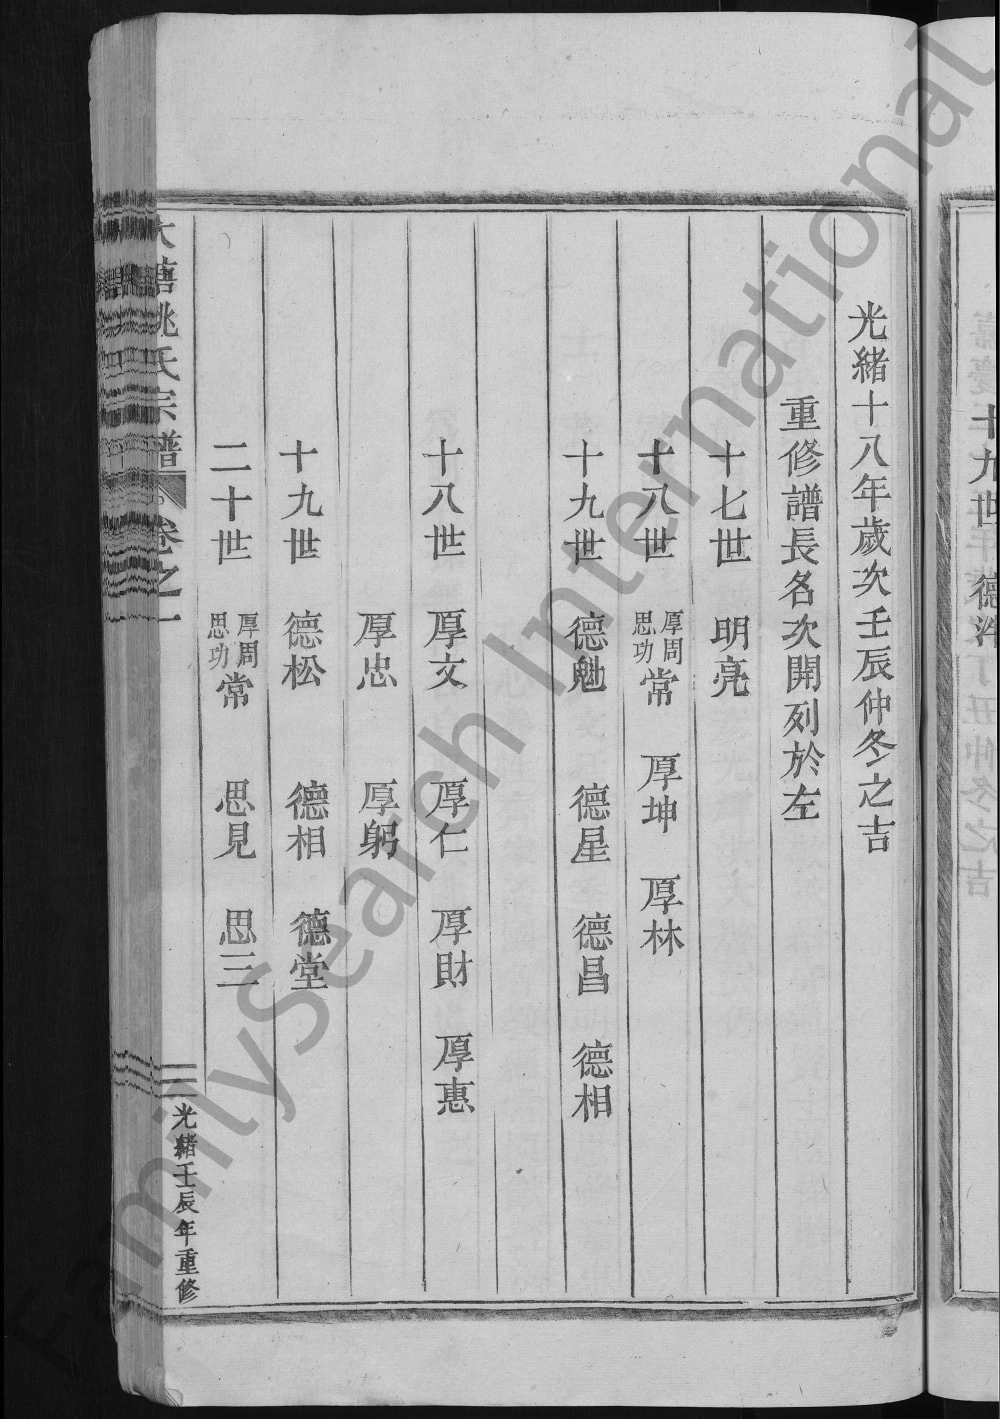 光緒十八年歲次壬辰仲冬之吉
重修譜長名次開列於左
十七世 明亮
十八世 厚周 思功 常 厚坤 厚林
十九世 德勉 德星 德昌 德相
十八世 厚文 厚仁 厚財 厚惠
厚忠 厚躬
十九世 德松 德相 德堂
二十世 厚周 思功 常 思見 思三
大塘姚氏宗譜 卷之一
光緒壬辰年重修
FamilySearch International